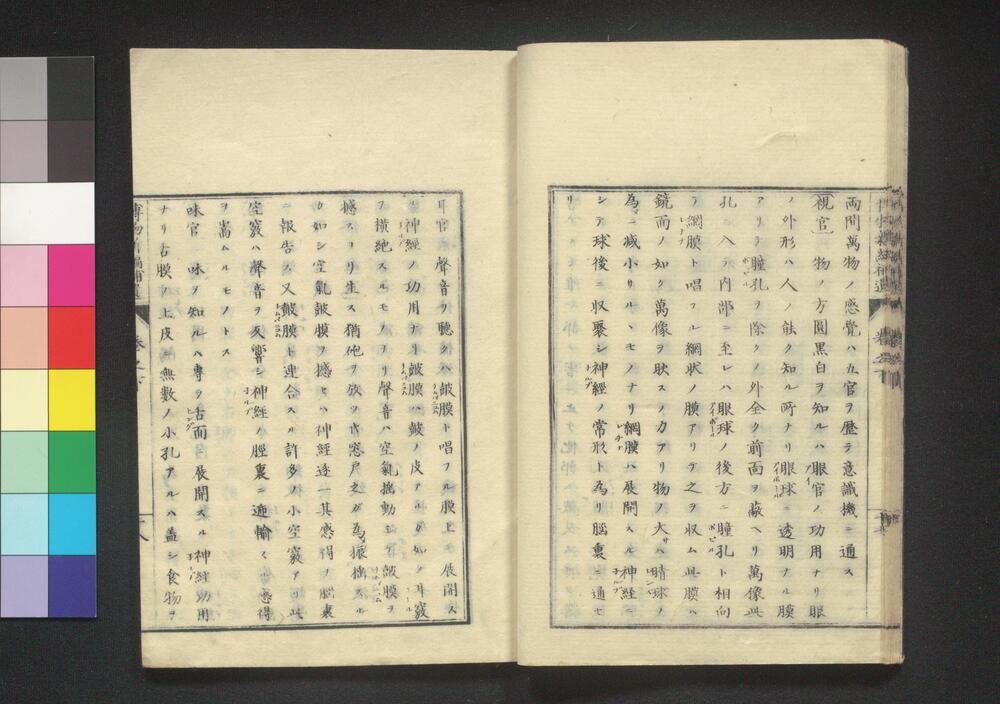 両間萬物ノ感覺ハ五官ヲ歴テ意識機ニ通ス
視官 物ノ方圓黒白ヲ知ルハ眼官ノ功用ナリ眼
ノ外形ハ人ノ能ク知ル所ナリ眼球ニ透明ナル膜
アリテ瞳孔ヲ除クノ外全ク前面ヲ蔽ヘリ萬像此
孔ニ入テ内部ニ至レハ眼球ノ後方ニ瞳孔ト相向
テ網膜ト唱フル網状ノ膜アリテ之ヲ収ム此膜ハ
鏡面ノ如ク萬像ヲ映スノ力アリ物ノ大ハ睛球ノ
為ニ减小サルヽモノナリ網膜ハ展開スル神経ニ
シテ球後ニ収聚シ神経ノ常形ト為リ脳裏ニ通セ
リ
耳官 聲音ヲ聴クハ皷膜ト唱フル膜上ニ展開ス
ル神經ノ功用ナリ皷膜ハ皷ノ皮アルガ如ク耳竅
ヲ横絶スルモノナリ聲音ハ空氣搖動シテ皷膜ヲ
撼スヨリ生ス猶砲ヲ放ツ時窓戸之ガ為ニ振搖スル
カ如シ空氣皷膜ヲ撼セハ神經逐一其感得ヲ脳裏
ニ報告ス又皷膜ト連合スル許多ノ小空竅アリ此
空竅ハ聲音ヲ反響シ神經ノ脛裏ニ逓輸スル感得
ヲ嵩ムルモノトス
味官 味ヲ知ルハ専ラ舌面ニ展開スル神経功用
ナリ舌膜ノ上皮ニ無數ノ小孔アルハ蓋シ食物ヲ